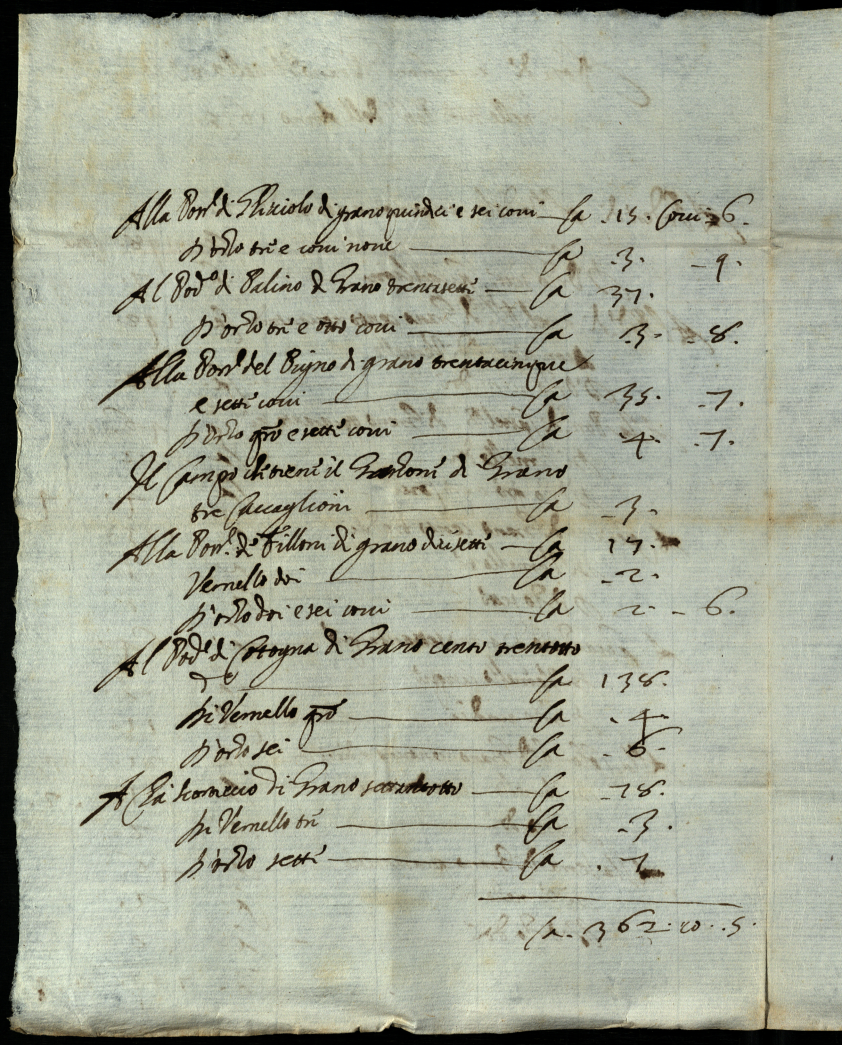 Alla Poss.e di Pisciolo di grano quindici e sei covi — Ca . 15 . Covi . 6 .
D'orzo tre e covi nove — Ca . 3 . - 9 .
Al Pod.e di Palino di Grano trentasette — Ca 37 .
D'orzo tre e otto covi — Ca . 3 . - 8 .
Alla Poss.e del Pigno di grano trentacinque
e sette covi — Ca 35 . - 7 .
D'orzo qro e sette covi — Ca . 4 . - 7 .
Il Campo che tiene il Grattoni di Grano
tre Caccaglioni — Ca . 3 .
Alla Poss.e de Filloni di grano dicisette — Ca 17 .
Vernello doi — Ca . 2 .
D'orzo doi e sei covi — Ca 2 . - 6 .
Al Pod.e di Cotogna di Grano cento trentotto
— Ca 138 .
Di Vernello qro — Ca . 4 .
D'orzo sei — Ca . 6 .
A di Grano settantotto — Ca . 78 .
Di Vernello tre — Ca . 3 .
D'orzo sette — Ca . 7
Ca . 362 . 10 . . 5 .